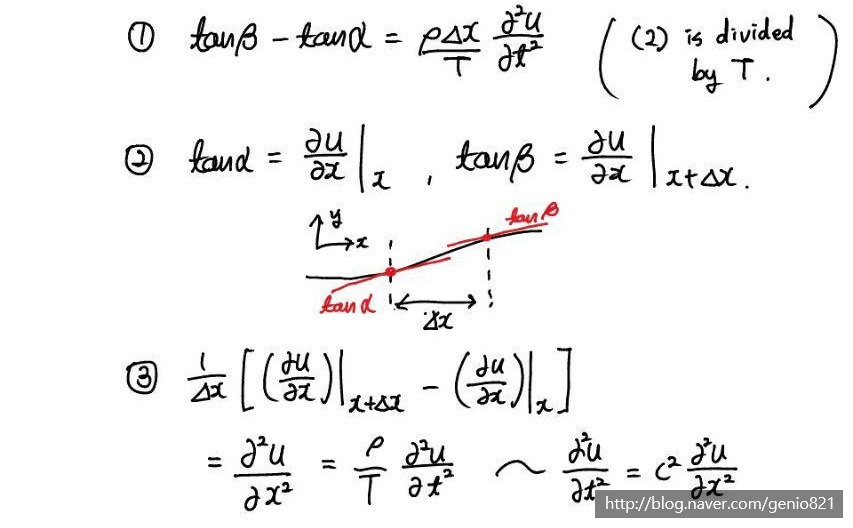 ① tanβ - tanα = ρΔx/T ∂²u/∂t² ( (2) is divided by T. )
② tanα = ∂u/∂x |x , tanβ = ∂u/∂x |x+Δx.
y
x
tanβ
tanα
Δx
③ 1/Δx [ (∂u/∂x)|x+Δx - (∂u/∂x)|x ]
= ∂²u/∂x² = ρ/T ∂²u/∂t² ~ ∂²u/∂t² = c² ∂²u/∂x²
http://blog.naver.com/genio821